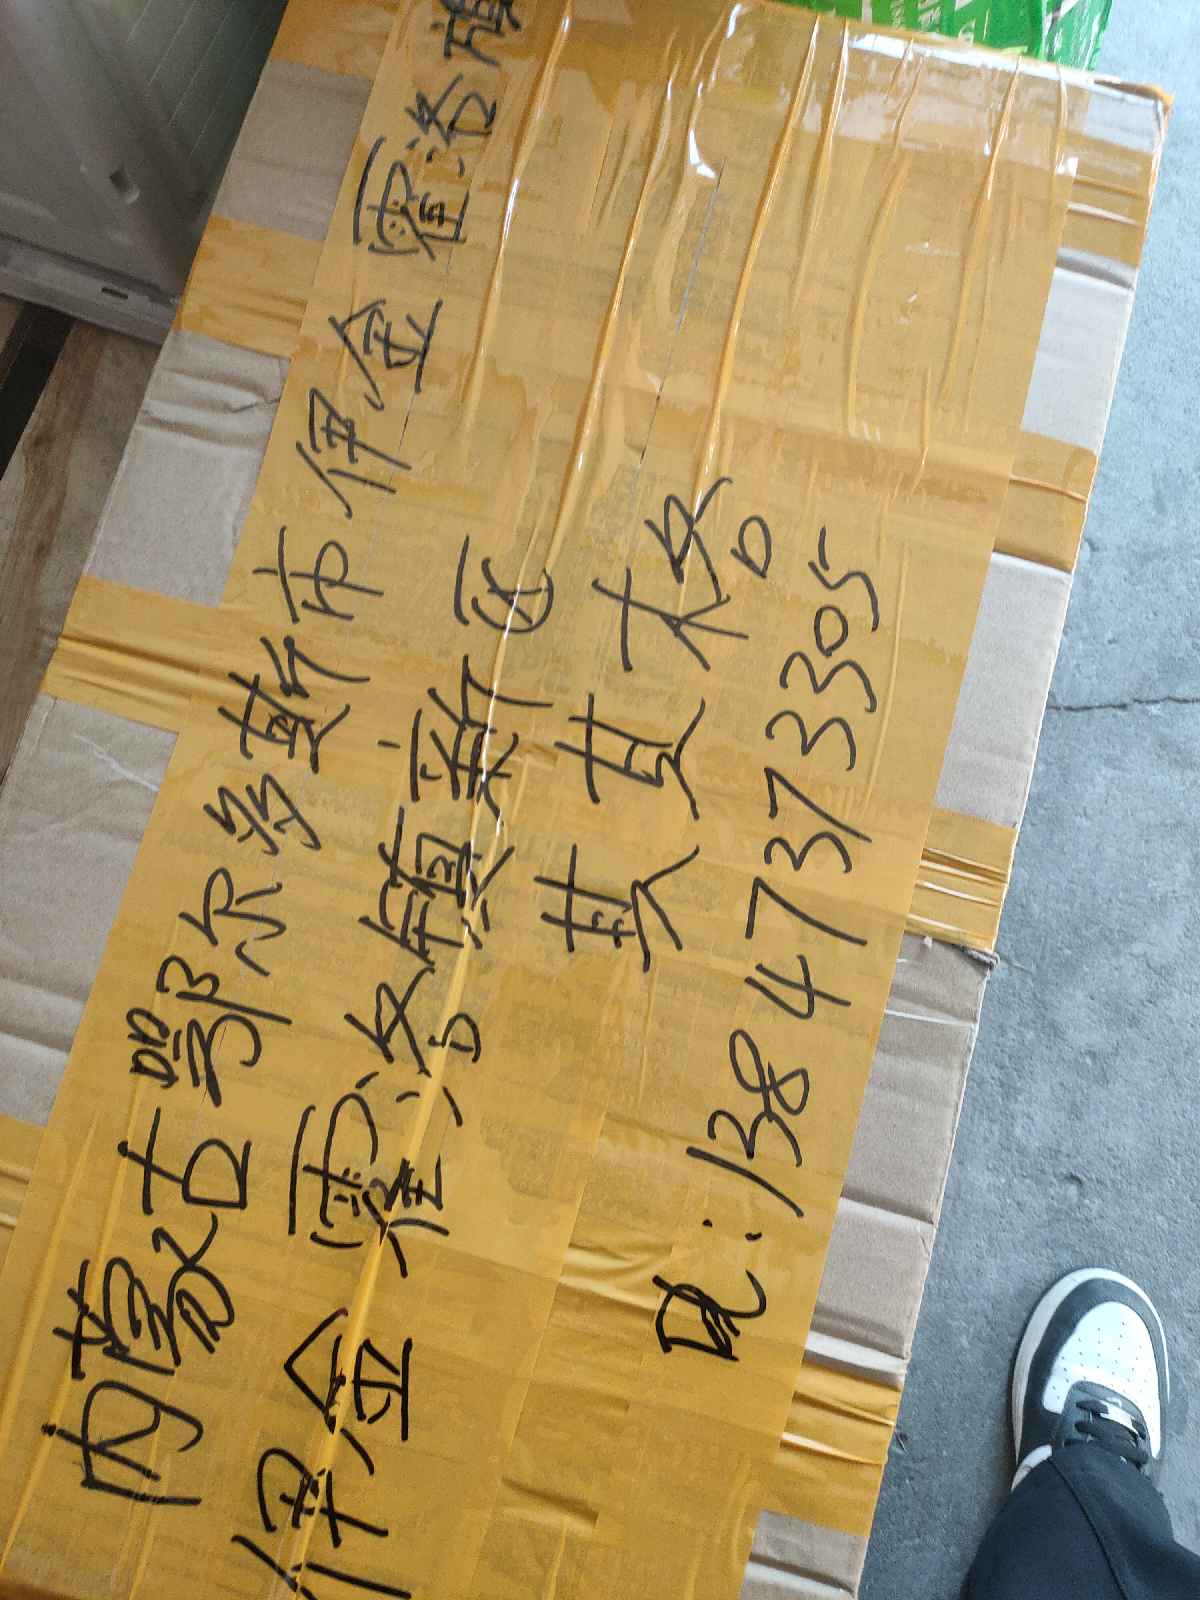 内蒙古鄂尔多斯市伊金霍洛旗
伊金霍洛镇新区
其其格
电:13847373305